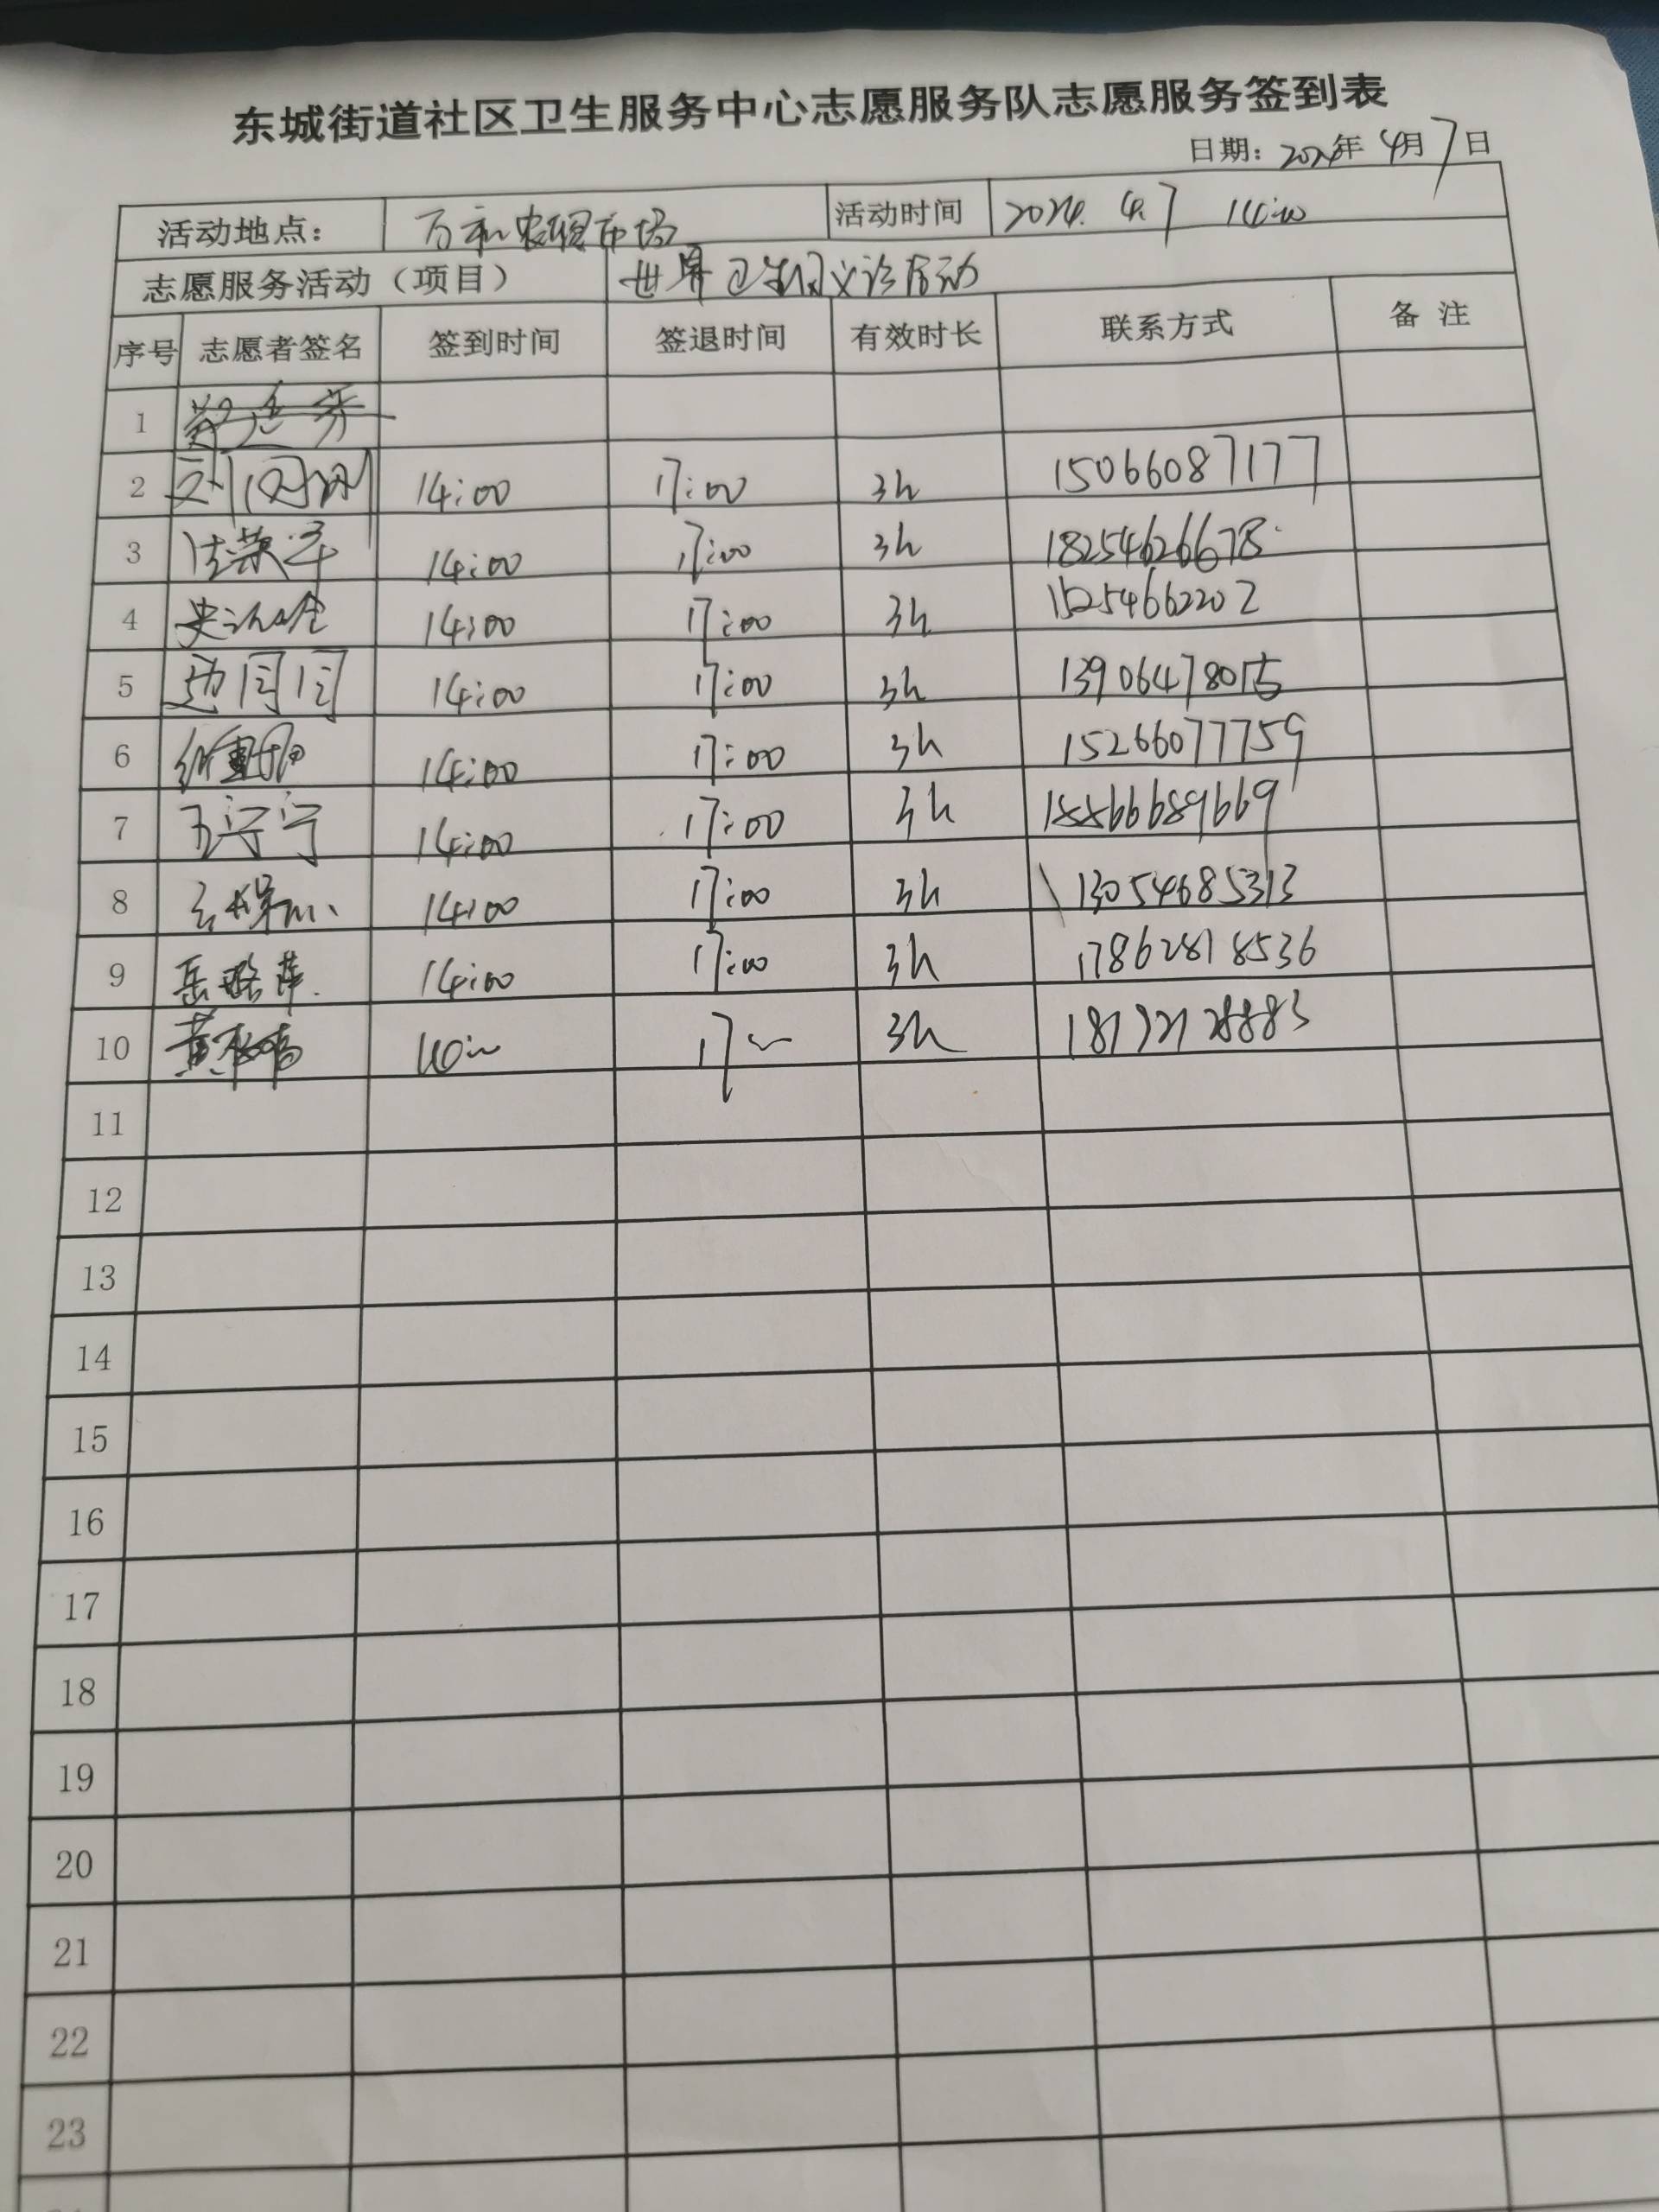 东城街道社区卫生服务中心志愿服务队志愿服务签到表
日期: 2024年 4月7日
活动地点: 万和农贸市场 活动时间 2024. 4.7 14:00
志愿服务活动（项目） 世界卫生日义诊活动
序号 志愿者签名 签到时间 签退时间 有效时长 联系方式 备 注
1
2 14:00 17:00 3h 15066087177
3 14:00 17:00 3h 18254626678
4 14:00 17:00 3h 15254662202
5 边同同 14:00 17:00 3h
6 14:00 17:00 3h 15266077759
7 王宁宁 14:00 17:00 3h
8 14:00 17:00 3h 13054685313
9 岳晓萍 14:00 17:00 3h 17862818536
10 3h
11
12
13
14
15
16
17
18
19
20
21
22
23